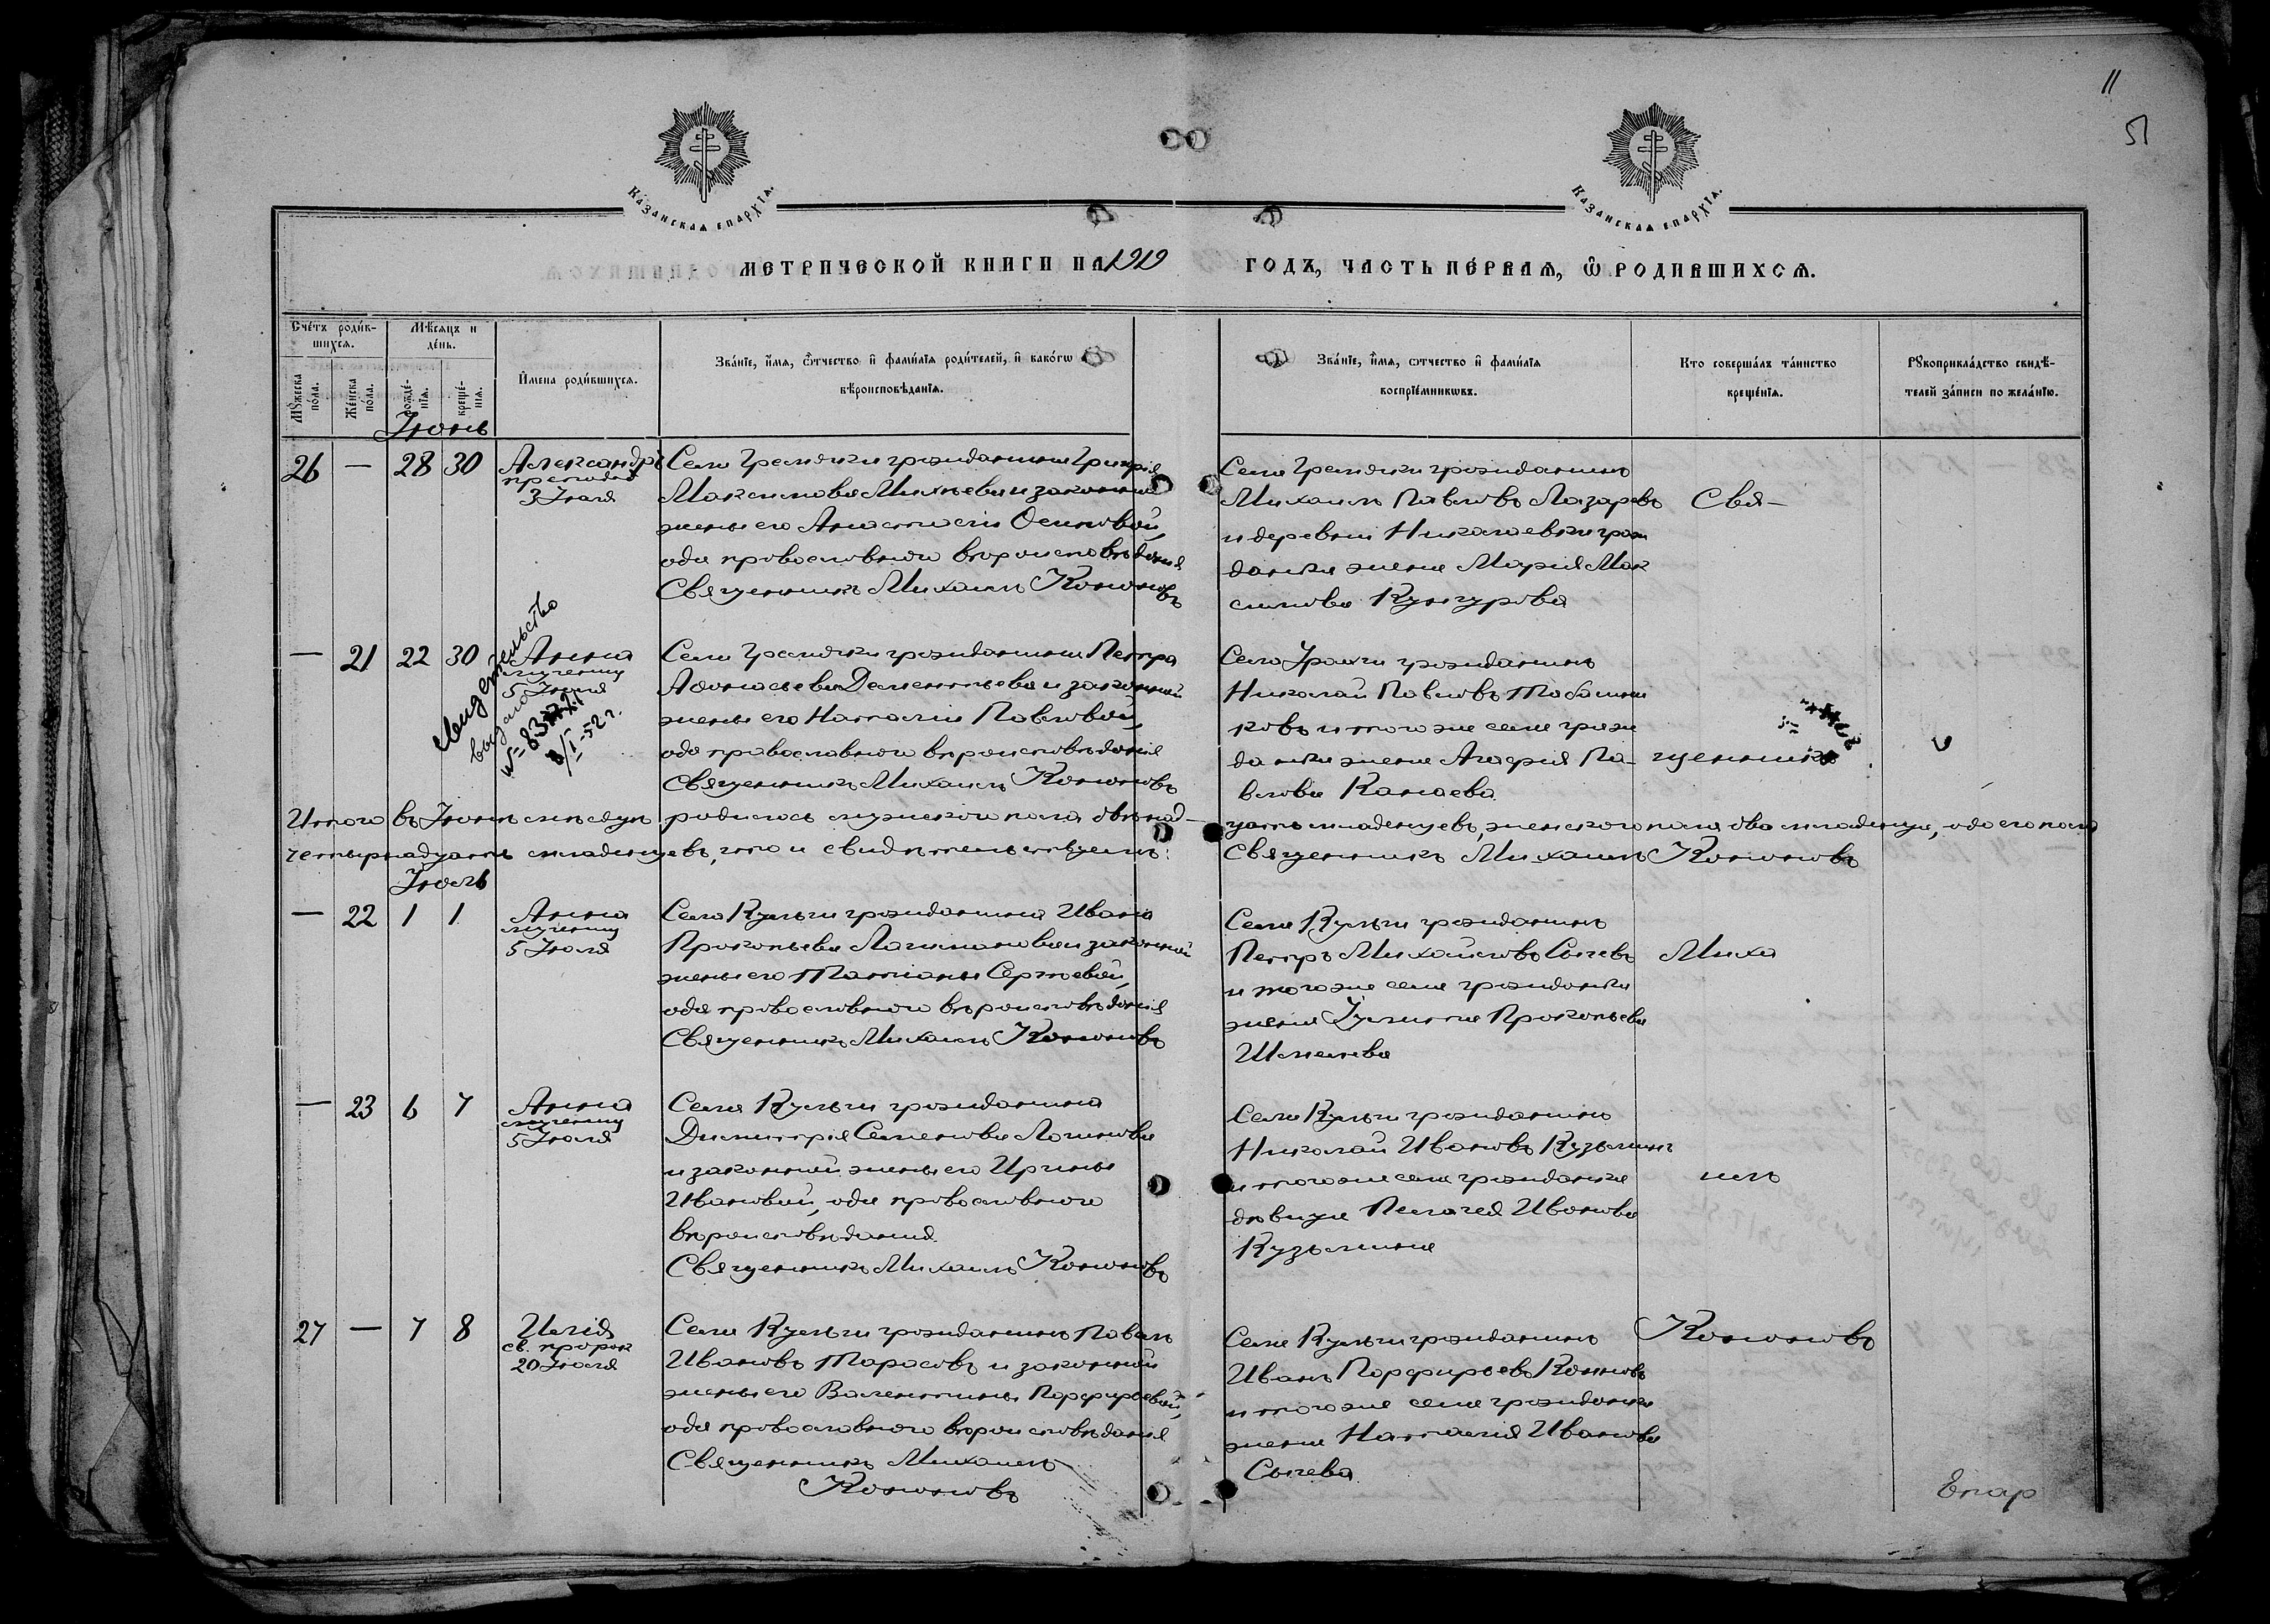 11
51
КАЗАНСКАѦ ЕПАРХІѦ.
КАЗАНСКАѦ ЕПАРХІѦ.
МЕТРИЧЕСКОЙ КНИГИ НА 1919
ГОДЪ, ЧАСТЬ ПЕ́РВАѦ, Ѡ РОДИВШИХСѦ.
Сче́тъ роди́в-
шихсѧ.
Мѣ́сяцъ и
де́нь.
Мꙋ́жеска
по́ла.
Же́нска
по́ла.
рожде́-
нїѧ.
креще́-
нїѧ.
И҆мена роди́вшихсѧ.
Зва́нїе, и҆́мѧ, ѻ҆́тчество и҆ фами́лїѧ роди́телей, и҆ како́гѡ
вѣроисповѣ́данїѧ.
Зва́нїе, и҆́мѧ, ѻ҆тчество и҆ фами́лїѧ
воспрїе́мникѡвъ.
Кто соверша́лъ та́инство
креще́нїѧ.
Рꙋкоприкла́дство свидѣ́-
телей за́писи по жела́нїю.
Іюнь
26 — 28 30 Александръ
преподоб
3 Іюля
Села Гремячки гражданина Григорія
Максимова Михѣева и законной
жены его Анастасіи Осиповой,
оба православнаго вѣроисповѣданія
Священникъ Михаилъ Кононовъ
Села Гремячки гражданинъ
Михаилъ Павловъ Лазаревъ
и деревни Николаевки граж
данка жена Марія Мак
симова Кунгурова
Свя-
— 21 22 30 Анна
мученицы
5 Іюля
Свидетельство
выдано
8/I-52 г.
Села Гремячки гражданина Петра
Аѳонасьева Дементьева и законной
жены его Наталіи Павловой,
оба православнаго вѣроисповѣданія
Священникъ Михаилъ Кононовъ
Николай Павловъ Табашни
ковъ и того же села граж
данка жена Агафія Па-
влова Канаева
щенникъ
Итого въ Іюнѣ мѣсяцѣ родилось мужескаго пола двѣнад-
цать младенцевъ, женскаго пола два младенца, обоего пола
четырнадцать младенцевъ, что и свидѣтельствуемъ:
Священникъ Михаилъ Кононовъ
Іюль
— 22 1 1 Анна
мученицы
5 Іюля
Села Кульги гражданина Ивана
Прокопьева Логинова и законной
жены его Татіаны Сергѣевой,
оба православнаго вѣроисповѣданія
Священникъ Михаилъ Кононовъ
Села Кульги гражданинъ
Петръ Михайловъ Сычевъ
и того же села гражданка
жена Прокопьева
Шмелева
Миха
— 23 6 7 Анна
мученицы
5 Іюля
Села Кульги гражданина
Димитрія Семенова Логинова
и законной жены его Ирины
Ивановой, оба православнаго
вѣроисповѣданія
Священникъ Михаилъ Кононовъ
Села Кульги гражданинъ
Николай Ивановъ Кузьминъ
и того же села гражданка
дѣвица Пелагея Иванова
Кузьмина
илъ
27 — 7 8 Илія
св. пророк
20 Іюля
Села Кульги гражданинъ Павелъ
Ивановъ Тарасовъ и законной
жены его Валентины Порфирьевой,
оба православнаго вѣроисповѣданія
Священникъ Михаилъ
Кононовъ
Села Кульги гражданинъ
Иванъ Порфирьевъ Конновъ
и того же села гражданка
жена Наталія Иванова
Сычева
Кононовъ
Епар